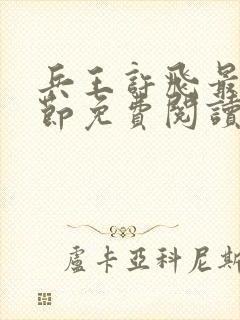 兵王許飛最
節免費閱讀
盧卡亞科尼斯